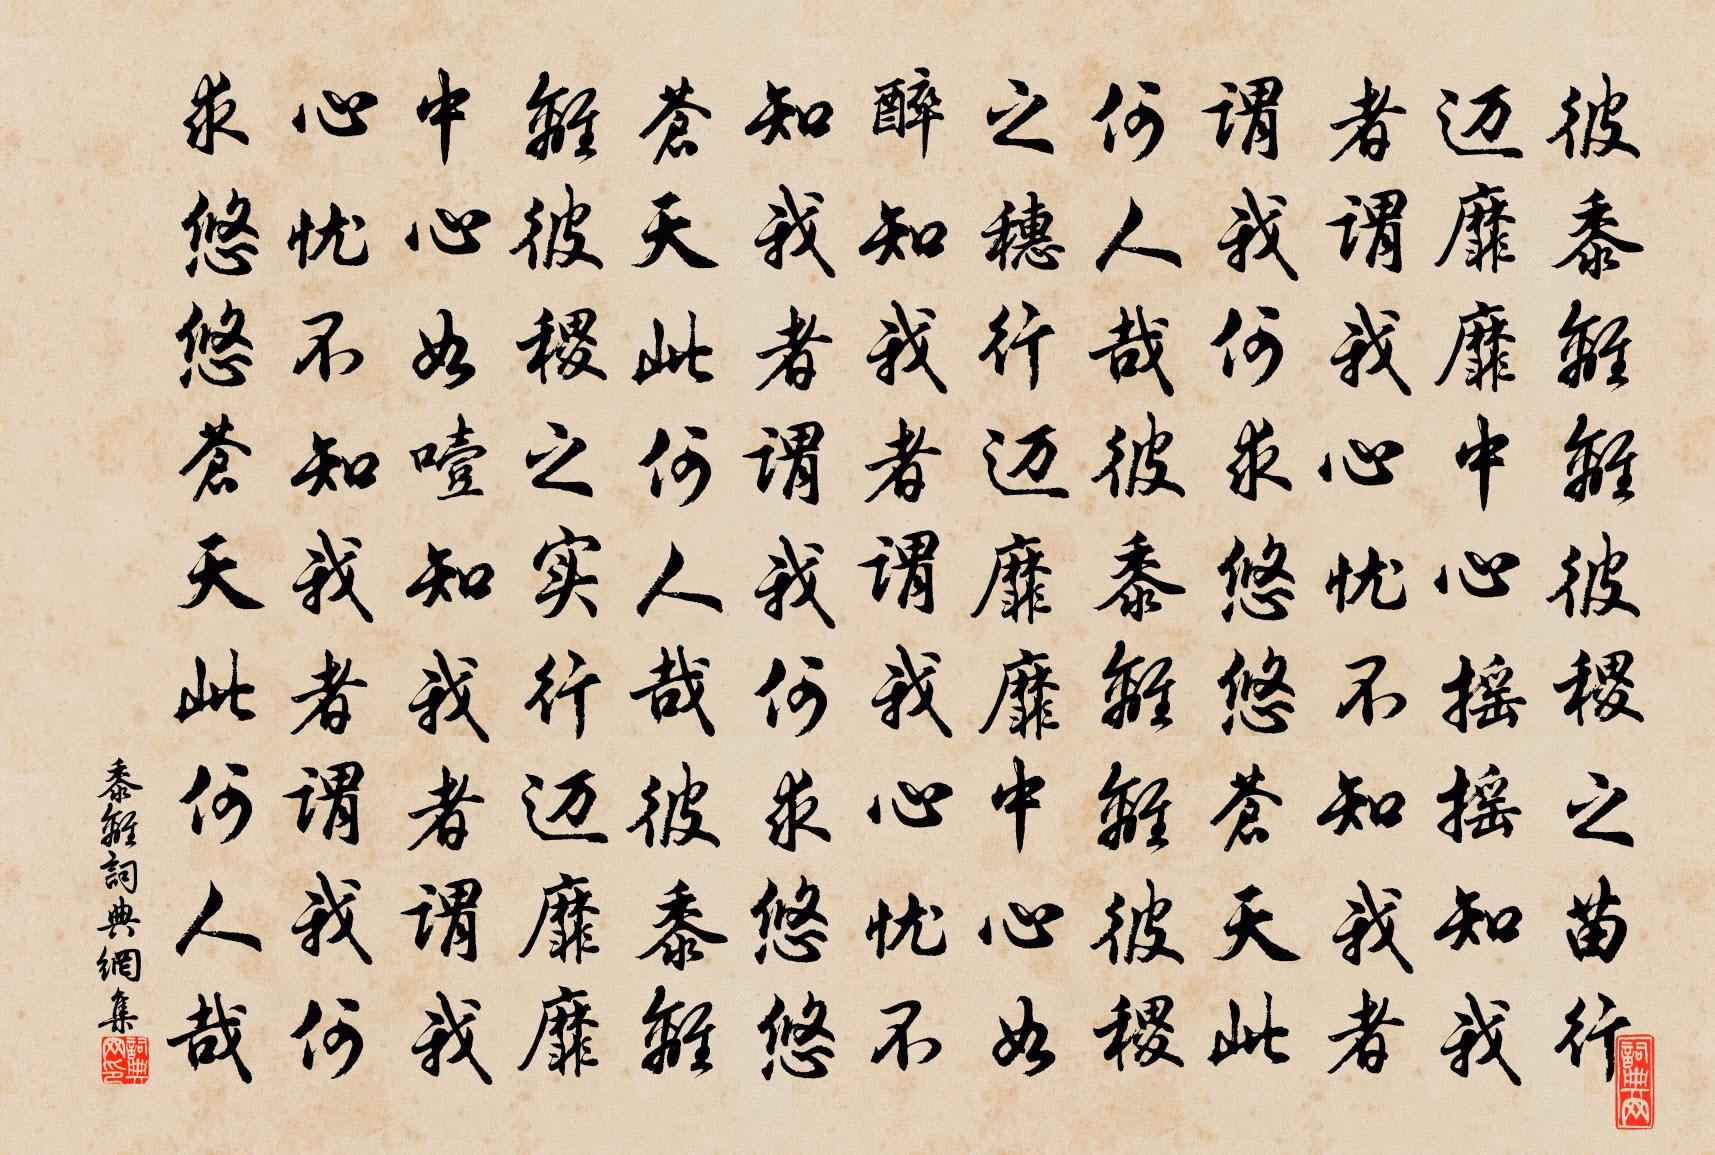 彼黍離離彼稷之苗行
迈靡靡中心摇摇知我
者謂我心忧不知我者
謂我何求悠悠蒼天此
何人哉彼黍離離彼稷
之穗行迈靡靡中心如
醉知我者謂我心忧不
知我者謂我何求悠悠
蒼天此何人哉彼黍離
離彼稷之实行迈靡靡
中心如噎知我者謂我
心忧不知我者謂我何
求悠悠蒼天此何人哉
黍離詞典網集
詞典网印
詞典网